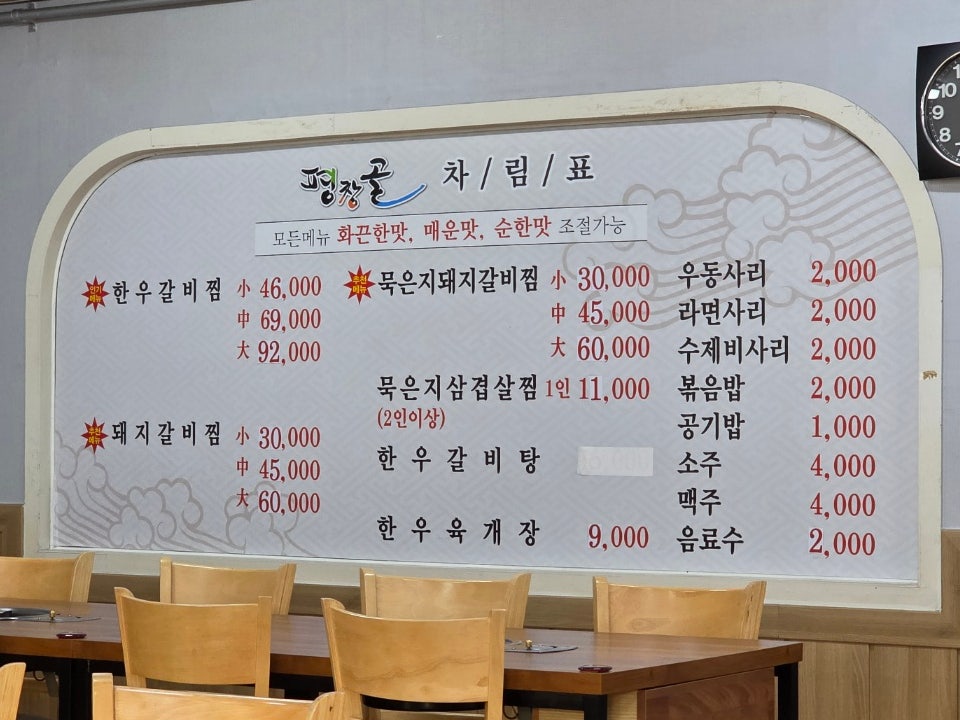 평창골 차/림/표
모든메뉴 화끈한맛, 매운맛, 순한맛 조절가능
인기메뉴 한우갈비찜 小 46,000
中 69,000
大 92,000
추천메뉴 돼지갈비찜 小 30,000
中 45,000
大 60,000
추천메뉴 묵은지돼지갈비찜 小 30,000
中 45,000
大 60,000
묵은지삼겹살찜 1인 11,000
(2인이상)
한우갈비탕
한우육개장 9,000
우동사리 2,000
라면사리 2,000
수제비사리 2,000
볶음밥 2,000
공기밥 1,000
소주 4,000
맥주 4,000
음료수 2,000
10
9
8